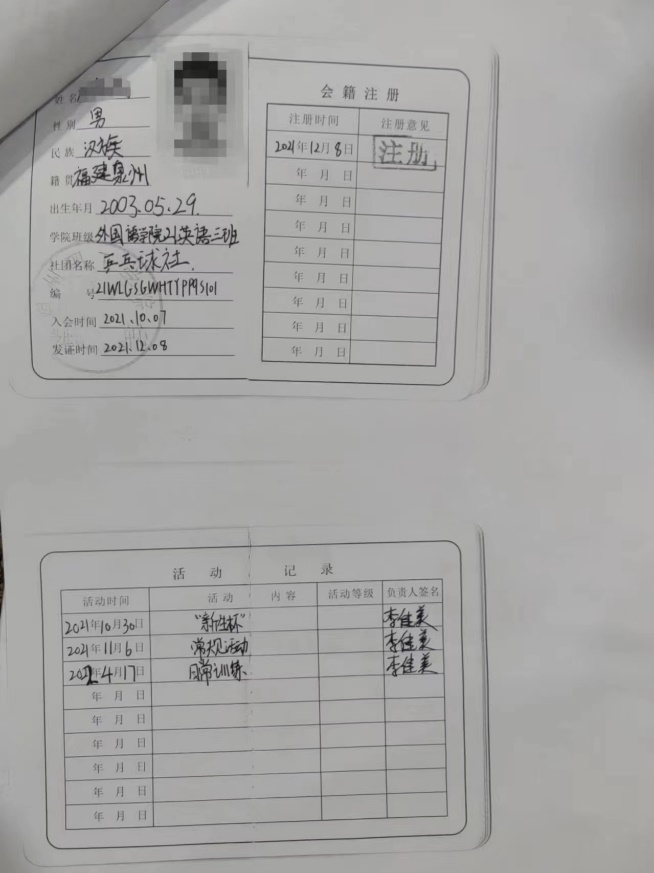 姓名
性别 男
民族 汉族
籍贯 福建泉州
出生年月 2003.05.29.
学院班级 外国语学院21英语三班
社团名称 乒乓球社.
编号 21WLGSGWHTYPPQS101
入会时间 2021.10.07
发证时间 2021.12.08
会籍注册
注册时间 注册意见
2021年12月8日 注册
年 月 日
年 月 日
年 月 日
年 月 日
年 月 日
年 月 日
年 月 日
年 月 日
活动记录
活动时间 活动内容 活动等级 负责人签名
2021年10月30日 "新生杯" 李佳美
2021年11月6日 常规活动 李佳美
2022年4月17日 日常训练 李佳美
年 月 日
年 月 日
年 月 日
年 月 日
年 月 日
年 月 日